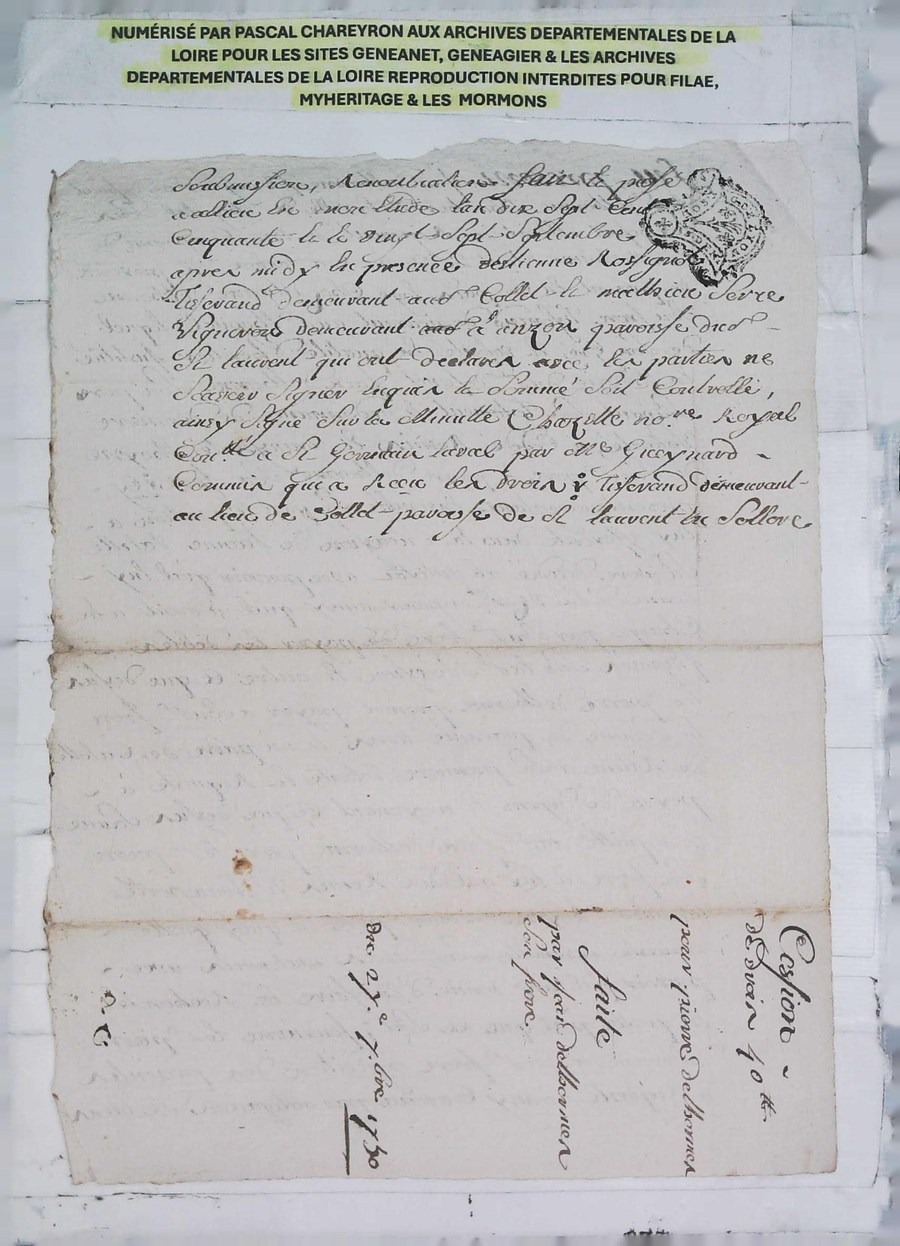 NUMÉRISÉ PAR PASCAL CHAREYRON AUX ARCHIVES DEPARTEMENTALES DE LA
LOIRE POUR LES SITES GENEANET, GENEAGIER & LES ARCHIVES
DEPARTEMENTALES DE LA LOIRE REPRODUCTION INTERDITES POUR FILAE,
MYHERITAGE & LES MORMONS
Soubmission, Renontiation fait &
en mon Etude l'an dix Sept Cent
Cinquante & le vingt Sept Septembre
apres midy En presence d'etienne Rossignol
Tisserand demeurant aud. Collet & mathieu Serre
Vigneron demeurant a anzon paroisse dud.
St laurent qui ont declaren avec les partien ne
Scavoir Signer Enquin la Somme Soit Contrellé,
ainsy Signé Sur la Minutte Chazelle no.re Royal
Con.llé a St Germain Laval par Me Gueynard
Commin qui a Receu les droin Tisserand demeurant
au lieu de Collet paroisse de St laurent En Sollore
Cession
de droin 40 tt
pour pierre delhormen
faite
par jean delhormen
Son frere
du 27.e 7.bre 1750